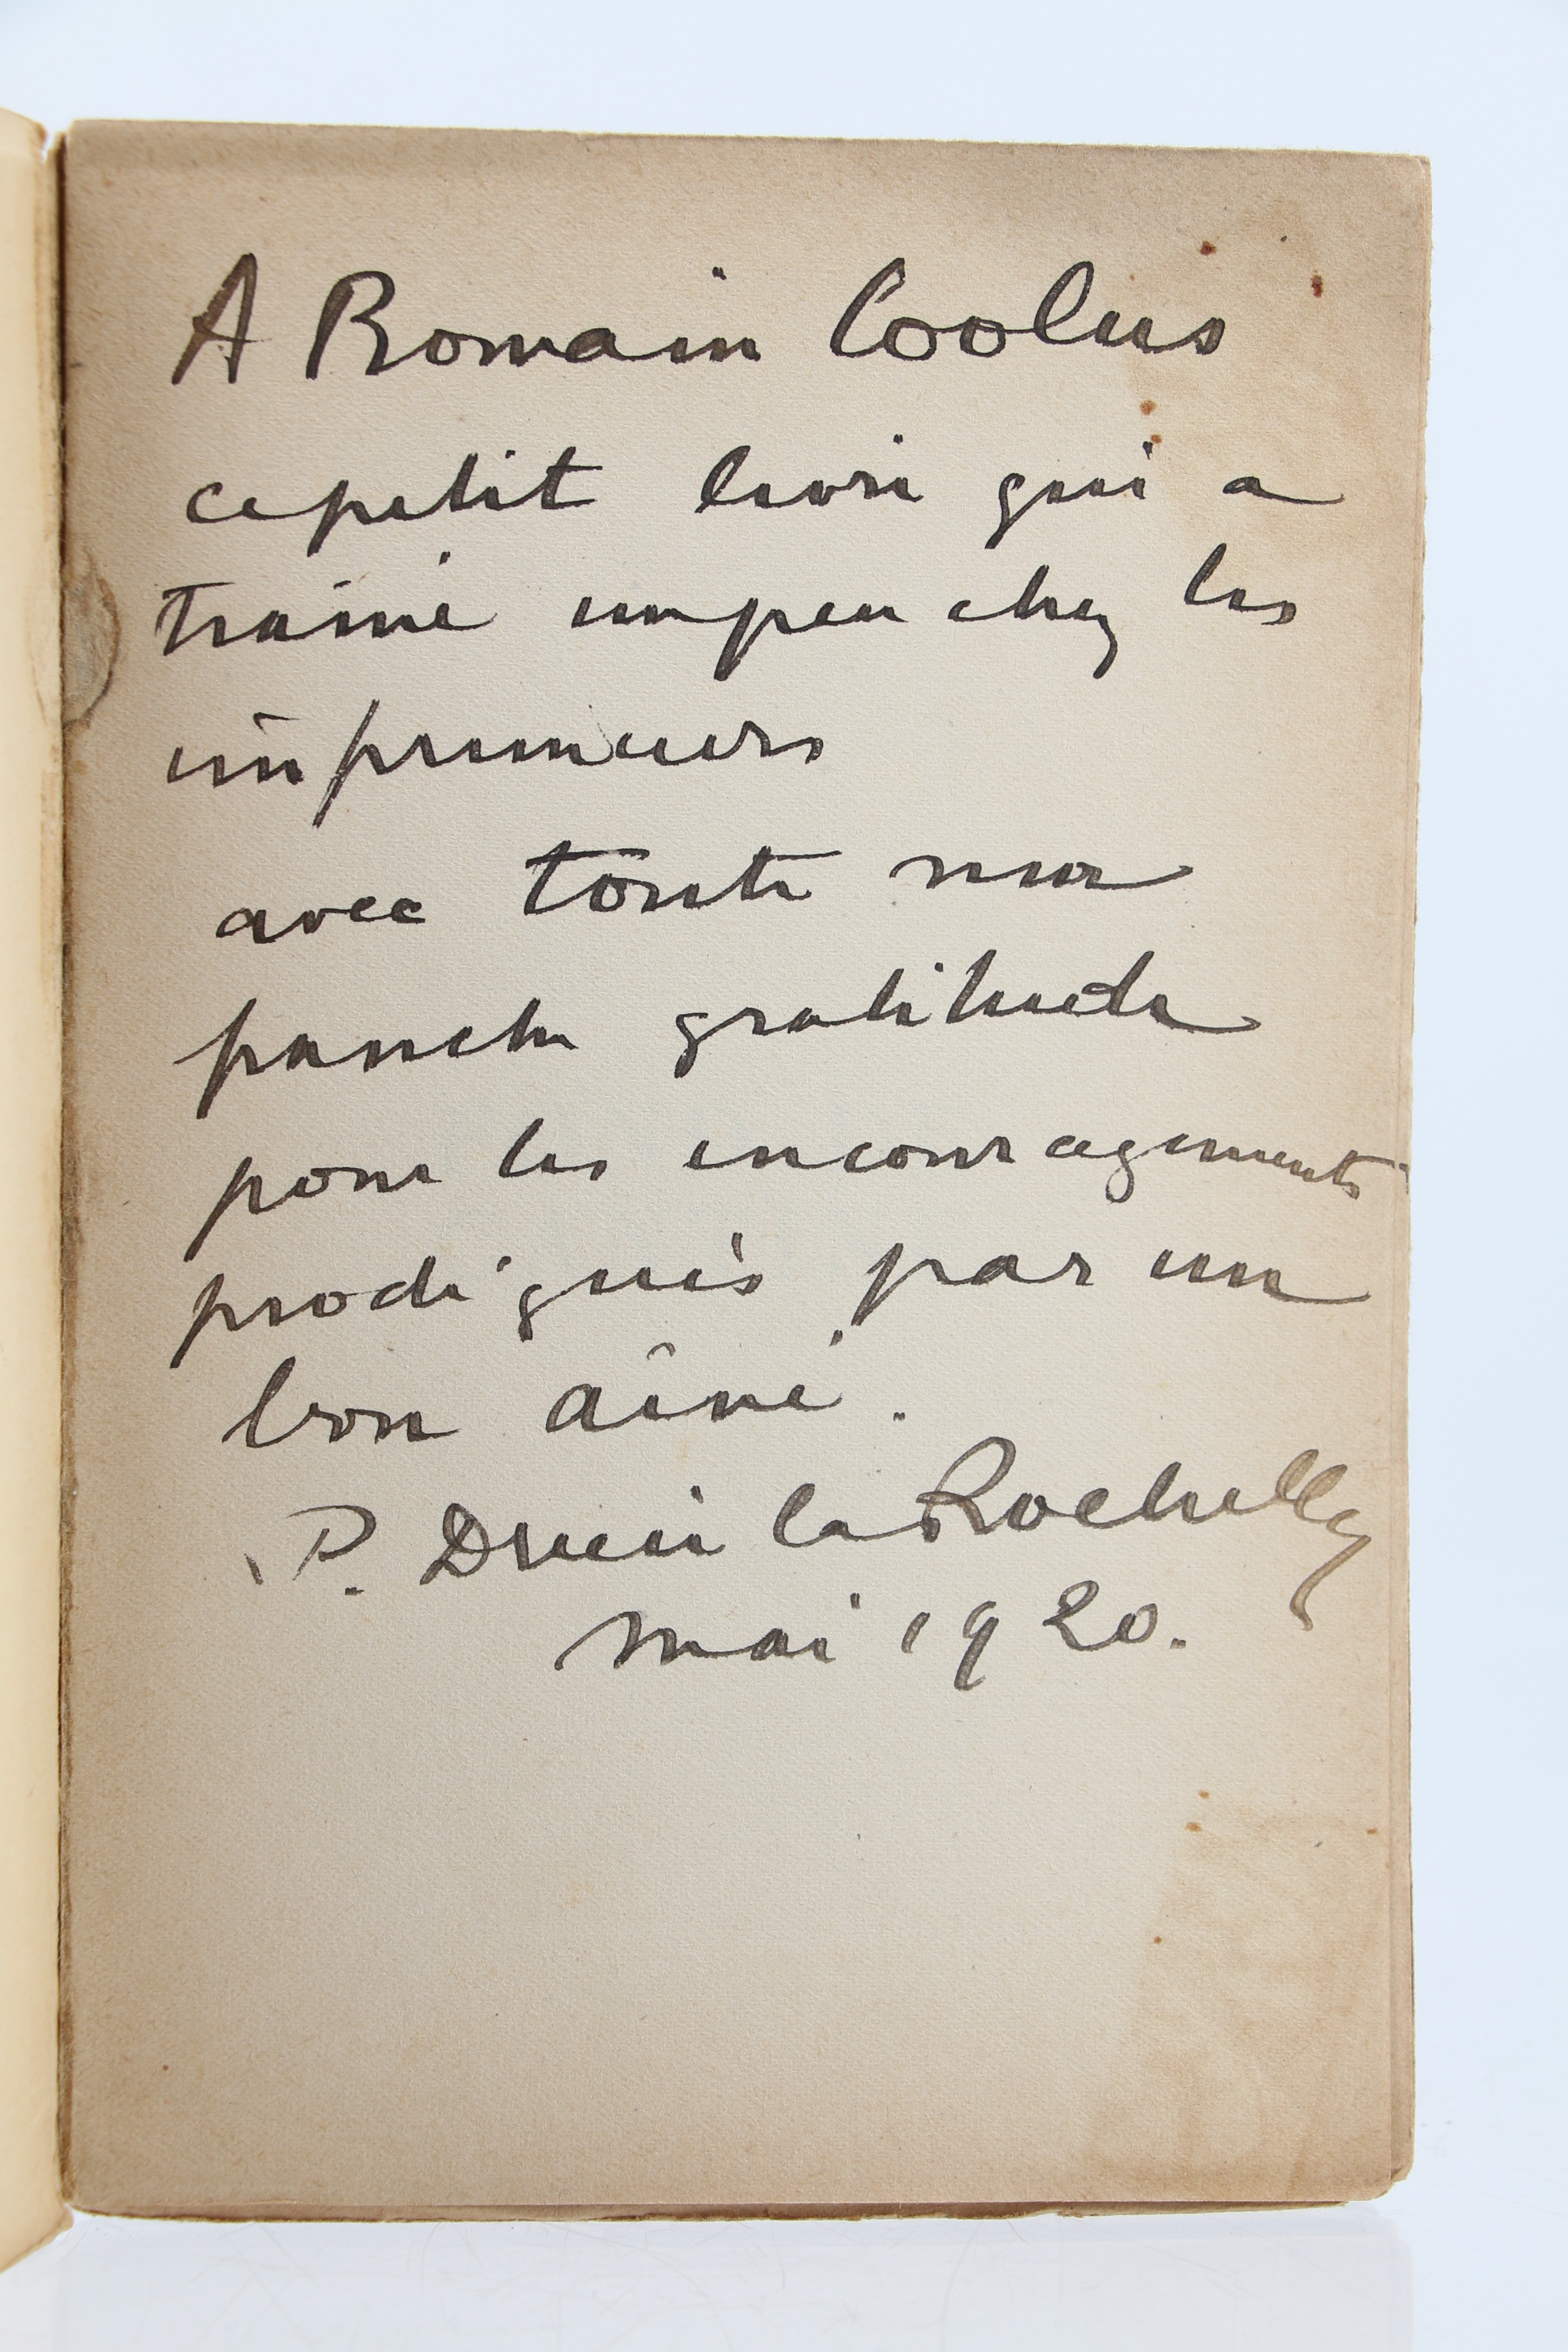 A Romain Coolus
ce petit livre qui a
trainé un peu chez les
imprimeurs
avec toute ma
franche gratitude
pour les encouragements
prodigués par un
bon aîné.
P. Drieu la Rochelle
mai 1920.